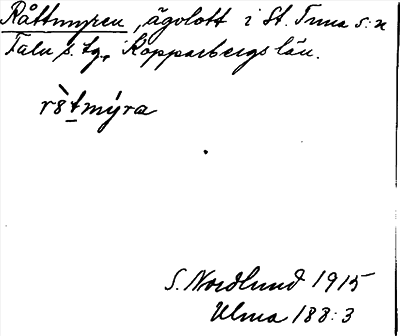 Råttmyren, ägolott i St. Tuna s:n
Falu s. tg., Kopparbergs län.
rò̀tmýra
S. Nordlund 1915
Ulma 188:3